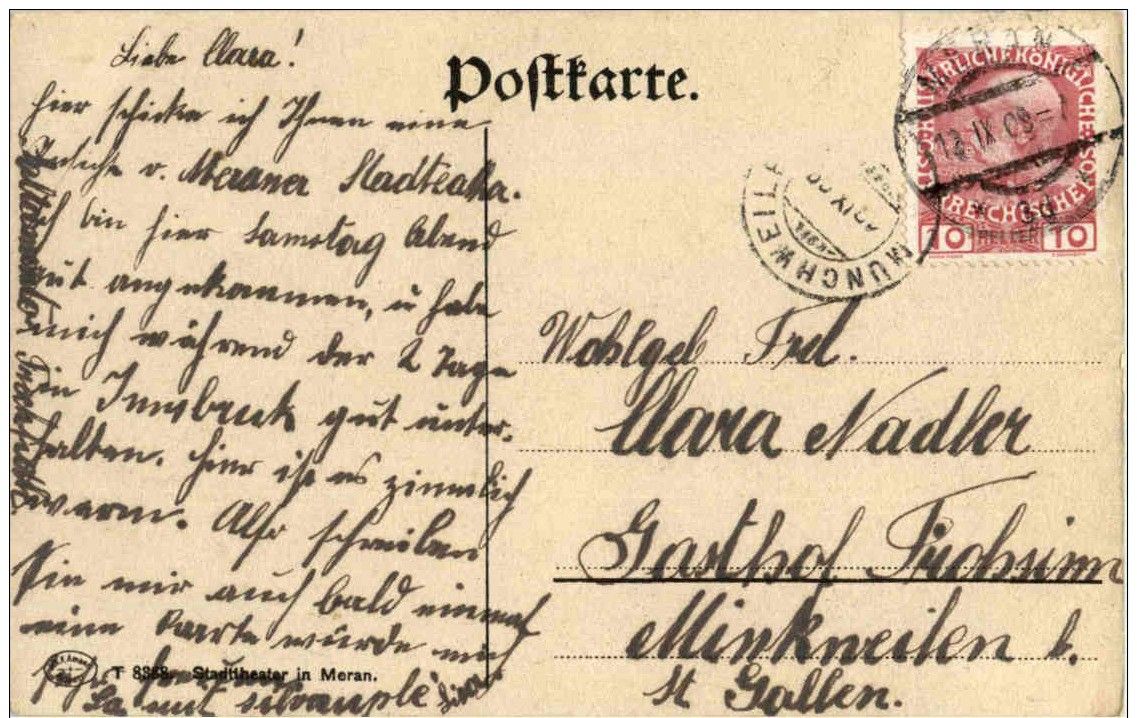 Postkarte.
Liebe Clara!
hier schicke ich Ihnen eine
Ansicht v. Meraner Stadtteater.
Ich bin hier Samstag Abend
gut angekommen, u habe
mich während der 2 Tage
in Innsbruck gut unter-
halten. hier ist es ziemlich
warm. Also schreiben
Sie mir auch bald einmal
eine Karte würde mich
sehr
mit
T 8358. Stadttheater in Meran.
KAISERLICHE KÖNIGLICHE ÖSTERREICHISCHE
10 HELLER 10
MERAN
13 IX 09-7
* 3d
Wohlgeb Frl.
Clara Nadler
Gasthof
Münkweilen b.
St Gallen.